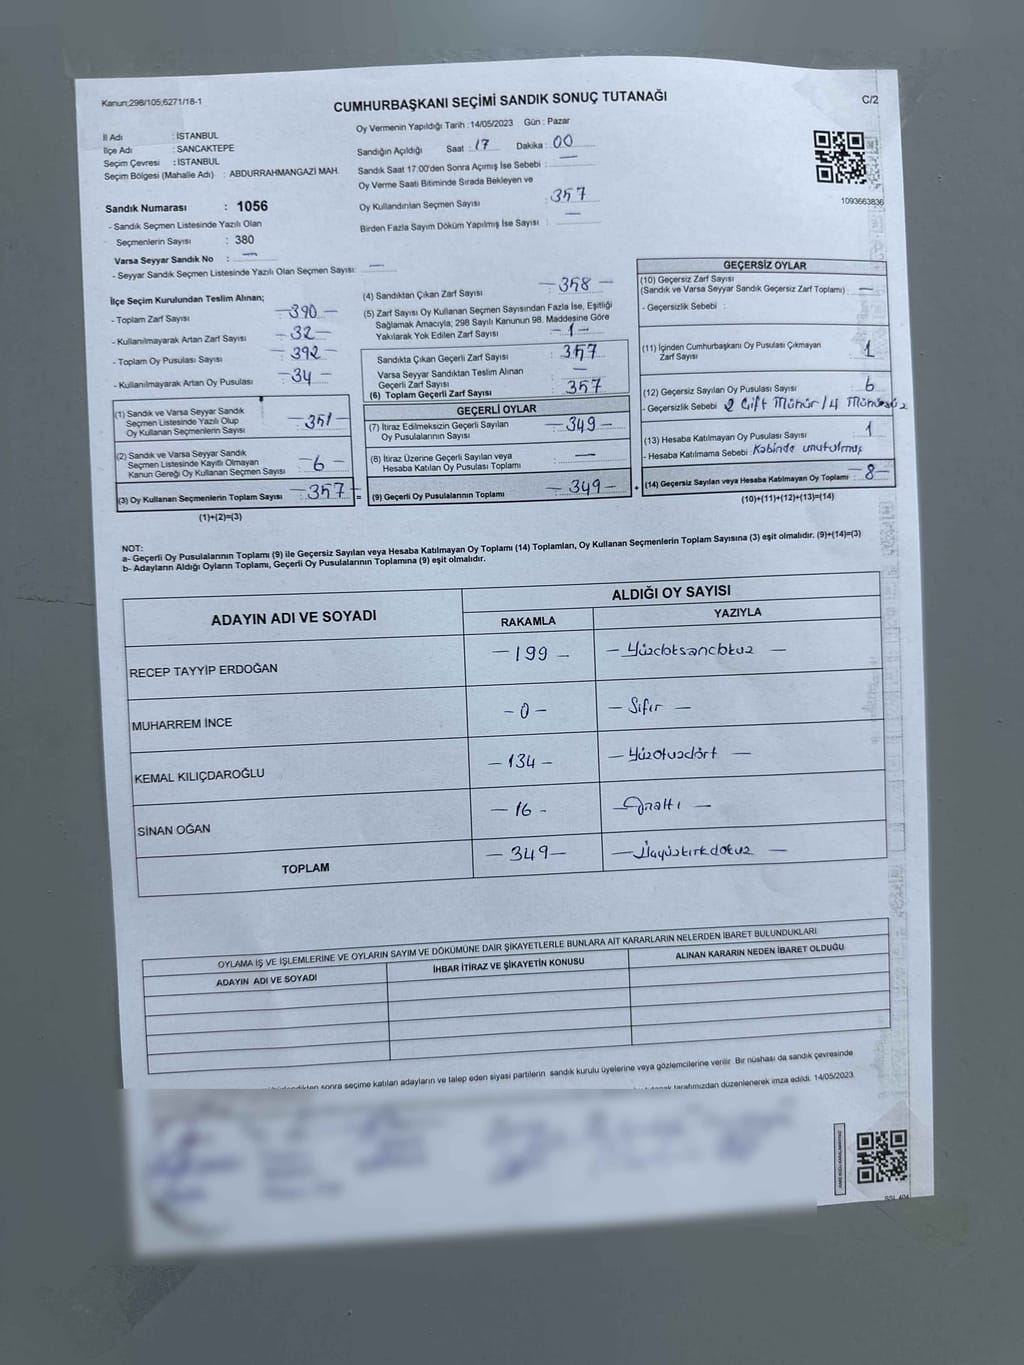 Kanun;298/105;6271/18-1
CUMHURBAŞKANI SEÇİMİ SANDIK SONUÇ TUTANAĞI
C/2
İl Adı : İSTANBUL
İlçe Adı : SANCAKTEPE
Seçim Çevresi : İSTANBUL
Seçim Bölgesi (Mahalle Adı) : ABDURRAHMANGAZİ MAH.
Sandık Numarası : 1056
- Sandık Seçmen Listesinde Yazılı Olan
Seçmenlerin Sayısı : 380
Varsa Seyyar Sandık No : —
- Seyyar Sandık Seçmen Listesinde Yazılı Olan Seçmen Sayısı: —
Oy Vermenin Yapıldığı Tarih :14/05/2023 Gün : Pazar
Sandığın Açıldığı Saat : 17 Dakika : 00
Sandık Saat 17:00'den Sonra Açımış İse Sebebi : —
Oy Verme Saati Bitiminde Sırada Bekleyen ve
Oy Kullandırılan Seçmen Sayısı : 357
Birden Fazla Sayım Döküm Yapılmış İse Sayısı : —
1093663836
İlçe Seçim Kurulundan Teslim Alınan;
- Toplam Zarf Sayısı : —390—
- Kullanılmayarak Artan Zarf Sayısı : —32—
- Toplam Oy Pusulası Sayısı : —392—
- Kullanılmayarak Artan Oy Pusulası : —34—
(1) Sandık ve Varsa Seyyar Sandık
Seçmen Listesinde Yazılı Olup
Oy Kullanan Seçmenlerin Sayısı : —351—
(2) Sandık ve Varsa Seyyar Sandık
Seçmen Listesinde Kayıtlı Olmayan
Kanun Gereği Oy Kullanan Seçmen Sayısı : —6—
(3) Oy Kullanan Seçmenlerin Toplam Sayısı : —357— =
(1)+(2)=(3)
(4) Sandıktan Çıkan Zarf Sayısı : —358—
(5) Zarf Sayısı Oy Kullanan Seçmen Sayısından Fazla İse, Eşitliği
Sağlamak Amacıyla; 298 Sayılı Kanunun 98. Maddesine Göre
Yakılarak Yok Edilen Zarf Sayısı : —1—
Sandıkta Çıkan Geçerli Zarf Sayısı : 357
Varsa Seyyar Sandıktan Teslim Alınan
Geçerli Zarf Sayısı : —
(6) Toplam Geçerli Zarf Sayısı : 357
GEÇERLİ OYLAR
(7) İtiraz Edilmeksizin Geçerli Sayılan
Oy Pusulalarının Sayısı : —349—
(8) İtiraz Üzerine Geçerli Sayılan veya
Hesaba Katılan Oy Pusulası Toplamı : —
(9) Geçerli Oy Pusulalarının Toplamı : —349— +
GEÇERSİZ OYLAR
(10) Geçersiz Zarf Sayısı
(Sandık ve Varsa Seyyar Sandık Geçersiz Zarf Toplamı) : —
- Geçersizlik Sebebi :
(11) İçinden Cumhurbaşkanı Oy Pusulası Çıkmayan
Zarf Sayısı : 1
(12) Geçersiz Sayılan Oy Pusulası Sayısı : 6
- Geçersizlik Sebebi : 2 Çift Mühür / 4 Mühürsüz
(13) Hesaba Katılmayan Oy Pusulası Sayısı : 1
- Hesaba Katılmama Sebebi : Kabinde unutulmuş
(14) Geçersiz Sayılan veya Hesaba Katılmayan Oy Toplamı : —8—
(10)+(11)+(12)+(13)=(14)
NOT:
a- Geçerli Oy Pusulalarının Toplamı (9) ile Geçersiz Sayılan veya Hesaba Katılmayan Oy Toplamı (14) Toplamları, Oy Kullanan Seçmenlerin Toplam Sayısına (3) eşit olmalıdır. (9)+(14)=(3)
b- Adayların Aldığı Oyların Toplamı, Geçerli Oy Pusulalarının Toplamına (9) eşit olmalıdır.
ADAYIN ADI VE SOYADI
ALDIĞI OY SAYISI
RAKAMLA YAZIYLA
RECEP TAYYİP ERDOĞAN —199— —Yüzdoksandokuz—
MUHARREM İNCE —0— —Sıfır—
KEMAL KILIÇDAROĞLU —134— —Yüzotuzdört—
SİNAN OĞAN —16— —Onaltı—
TOPLAM —349— —Üçyüzkırkdokuz—
OYLAMA İŞ VE İŞLEMLERİNE VE OYLARIN SAYIM VE DÖKÜMÜNE DAİR ŞİKAYETLERLE BUNLARA AİT KARARLARIN NELERDEN İBARET BULUNDUKLARI
ADAYIN ADI VE SOYADI İHBAR İTİRAZ VE ŞİKAYETİN KONUSU ALINAN KARARIN NEDEN İBARET OLDUĞU
sonra seçime katılan adayların ve talep eden siyasi partilerin sandık kurulu üyelerine veya gözlemcilerine verilir. Bir nüshası da sandık çevresinde
tarafımızdan düzenlenerek imza edildi. 14/05/2023